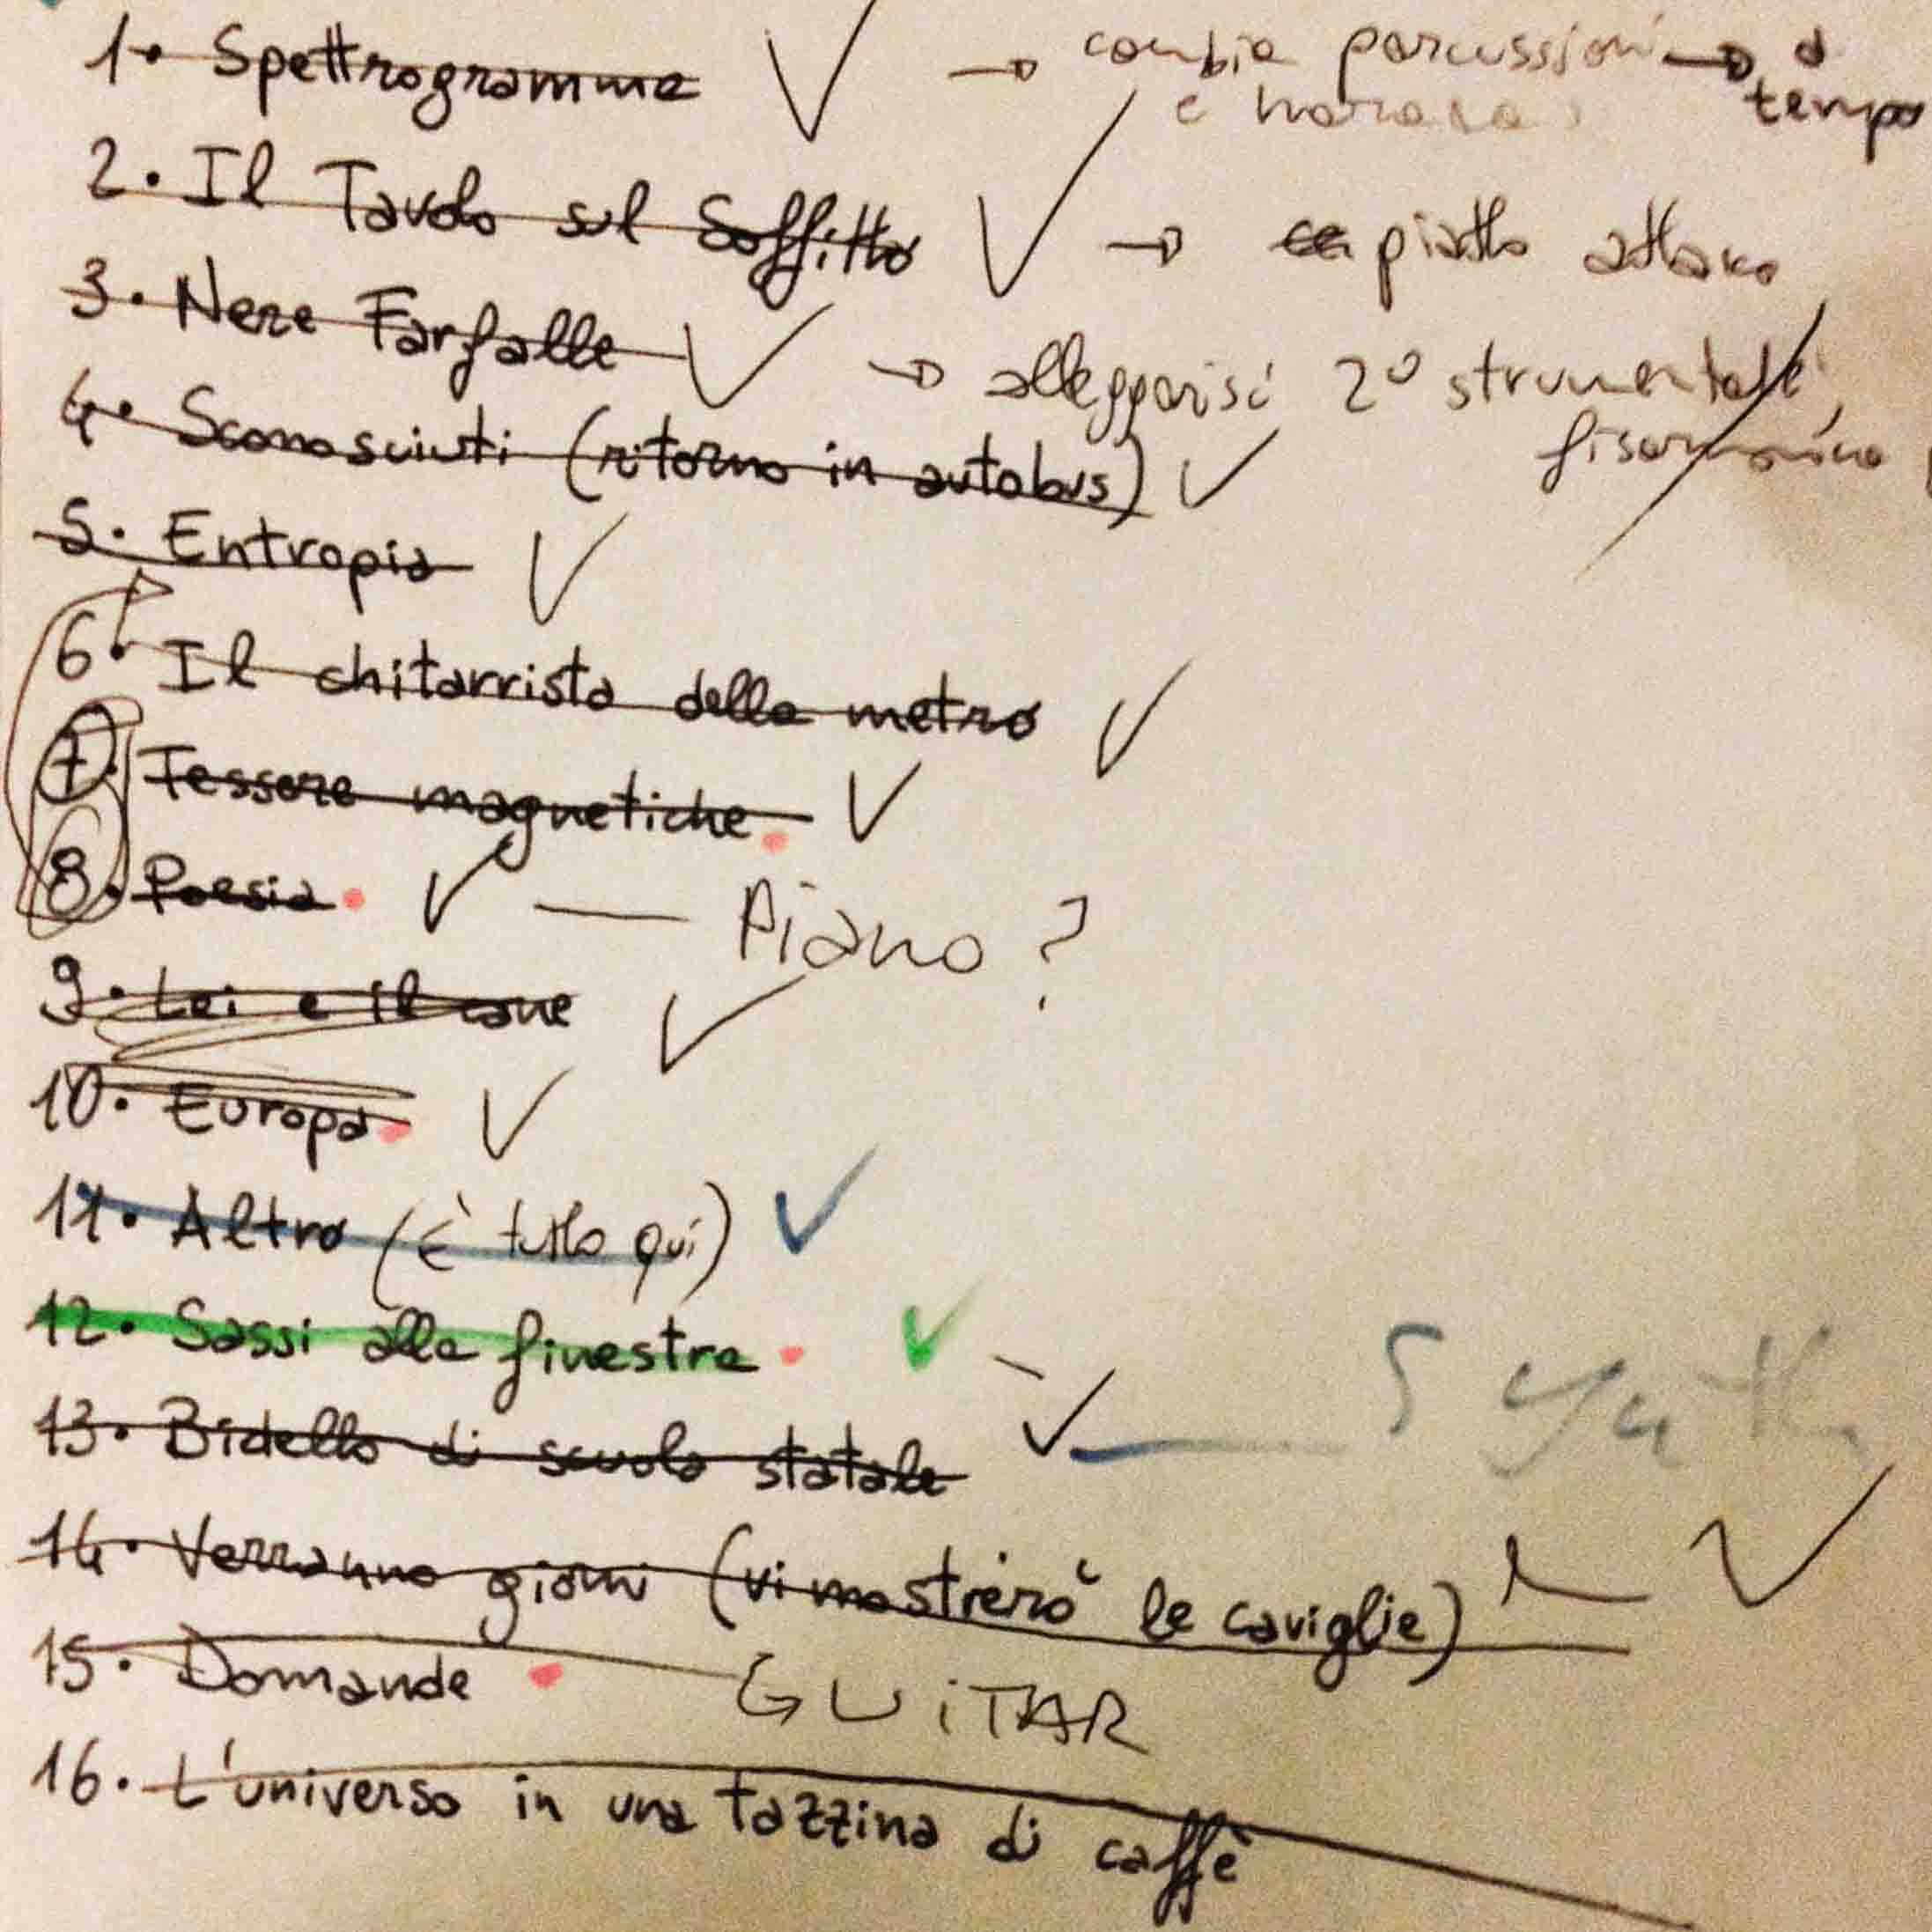 1. Spettrogramma → cambia percussioni → a tempo
e
2. Il Tavolo sul Soffitto → piatto
3. Nere Farfalle → 2° strumentale,
fisarmonica
4. Sconosciuti (ritorno in autobus)
5. Entropia
6. Il chitarrista della metro
7. Tessere magnetiche
8. Poesia — Piano ?
9. Lei e il cane
10. Europa
11. Altro (È tutto qui)
12. Sassi alla finestra
13. Bidello di scuola statale — Synth
14. Verranno giorni (vi mostrerò le caviglie)
15. Domande GUiTAR
16. L'universo in una tazzina di caffè